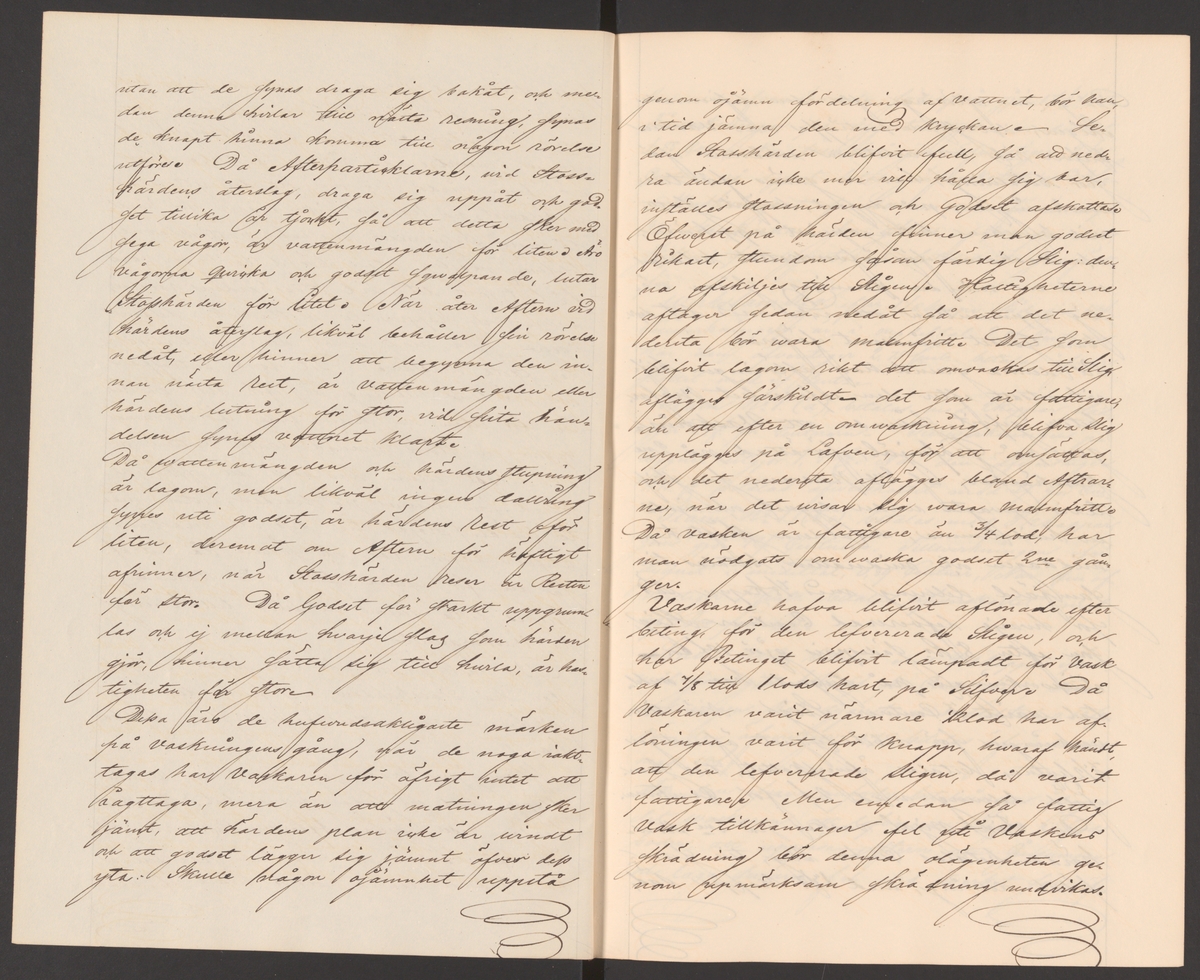 utan att de synas draga sig bakåt, och me-
dan denna hvilar till nästa resning, synas
de knapt hinna komma till någon rörelse
utföre. Då Afterpartiklarne, vid Stoss-
härdens återslag, draga sig uppåt och god-
set tillika är tjockt, så att detta sker med
sega vågor, är vattenmängden för liten. Äro
vågorna quicka och godset sqvalpande, lutar
Stosshärden för litet. När åter Aftern vid
härdens återslag, likväl behåller sin rörelse
nedåt, eller hinner att begynna den in-
nan nästa rest, är vattenmängden eller
härdens lutning för stor, vid sista hän-
delsen synes vattnet klart.
Då vattenmängden och härdens stupning
är lagom, men likväl ingen dallring
synes uti godset, är härdens rest för
liten, deremot om Aftern för häftigt
afrinner, när Stosshärden reser är Resten
för stor. Då Godset för starkt uppgrum-
las och ej mellan hvarje slag som härden
gör, hinner sätta sig till hvila, är has-
tigheten för stor.
Dessa äro de hufvudsakligaste märken
på vaskningens gång, när de noga iakt-
tagas har Vaskaren för öfrigt intet att
iagttaga, mera än att matningen sker
jämt, att härdens plan icke är vindt
och att godset lägger sig jämnt öfver dess
yta. Skulle någon ojämnhet uppstå
genom ojämn fördelning af vattnet, bör han
i tid jämna den med Kryckan. Se-
dan Stosshärden blifvit full, så att ned-
ra ändan icke mer vill hålla sig bar,
instädes stossningen och Godset afskottas.
Öfverst på härden finner man godset
rikast, stundom såsom färdig Slig: den-
na afskiljes till Sligen. Haltigheterne
aftager sedan nedåt så att det ne-
dersta bör wara malmfritt. Det som
blifvit lagom rikt att omvaskas till Slig
aflägges särskildt. det som är fattigare,
än att efter en omwaskning, blifva Slig
upplägges på Låfven, för att omsättas,
och det nedersta aflägges bland Aftrar-
ne, när det wisar sig wara malmfritt.
Då vasken är fattigare än 3/4 lod, har
man nödgats omwaska godset 2ne gån-
ger.
Vaskarne hafva blifvit aflönade efter
beting, för den lefvererade Sligen, och
har Betinget blifvit lämpadt för Vask
af 7/8 till 1 lods halt, på Silfver. Då
Vaskaren varit närmare 1/2 lod har af-
löningen varit för Knapp, hwaraf händt,
att den lefvererade Sligen, då varit
fattigare. Men emedan så fattig
Vask tillkännager fel på Vaskens
skrädning bör denna olägenheten ge-
nom upmärksam skrädning undvikas.